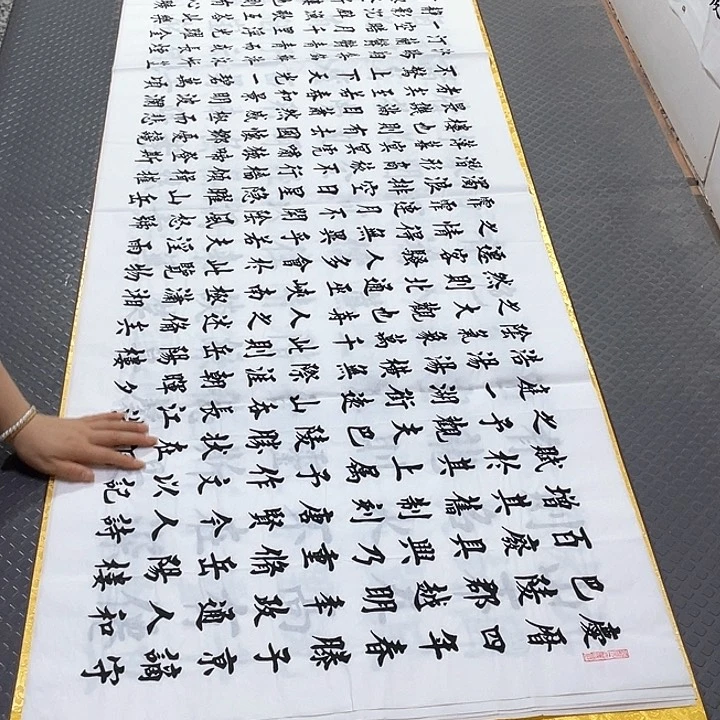 慶曆四年春滕子京謫守
巴陵郡越明年政通人和
百廢具興乃重修岳陽樓
增其舊制刻唐賢今人詩
賦於其上屬予作文以記
之予觀夫巴陵勝狀在
庭一湖銜遠山吞長江
浩湯湯橫無際涯朝暉夕
陰氣象萬千此則岳陽樓
之大觀也前人之述備矣
然則北通巫峽南極瀟湘
遷客騷人多會於此覽物
之情得無異乎若夫淫雨
霏霏連月不開陰風怒號
濁浪排空日星隱曜山岳
潛形商旅不行檣傾楫摧
薄暮冥冥虎嘯猿啼登斯
樓也則有去國懷鄉憂讒
畏譏滿目蕭然感極而悲
者矣至若春和景明波瀾
不驚上下天光一碧萬頃